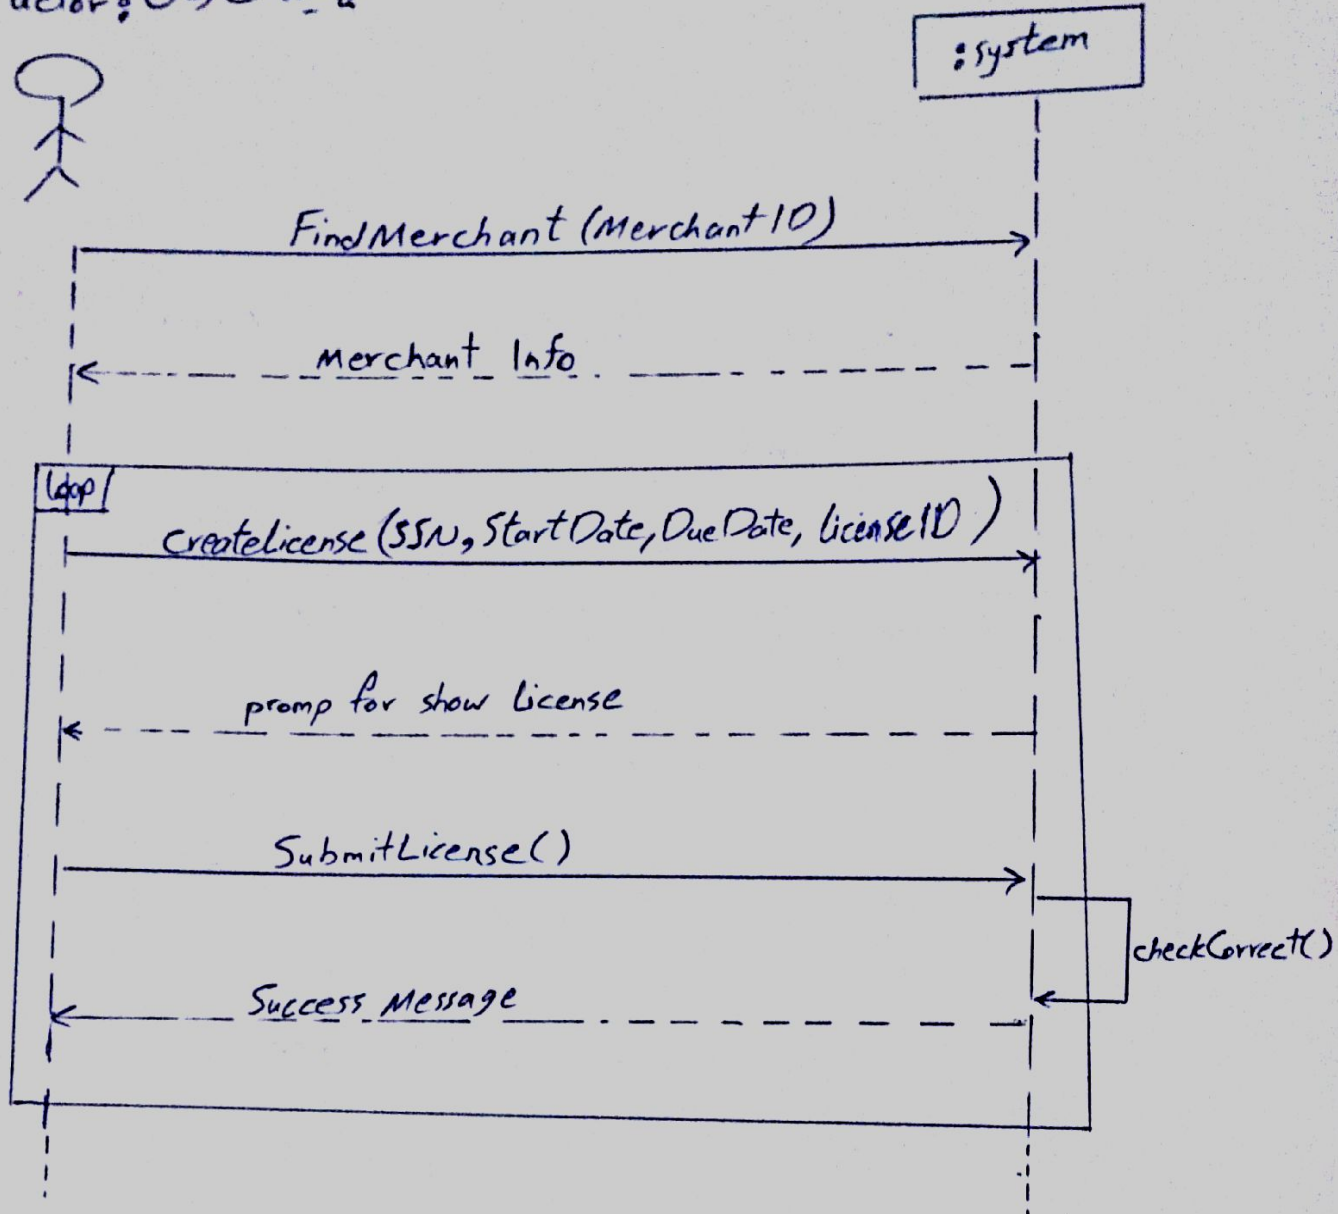 actor:
:system
FindMerchant (Merchant ID)
Merchant Info
Loop
createLicense (SSN, StartDate, DueDate, licenseID)
promp for show license
SubmitLicense()
checkCorrect()
Success Message